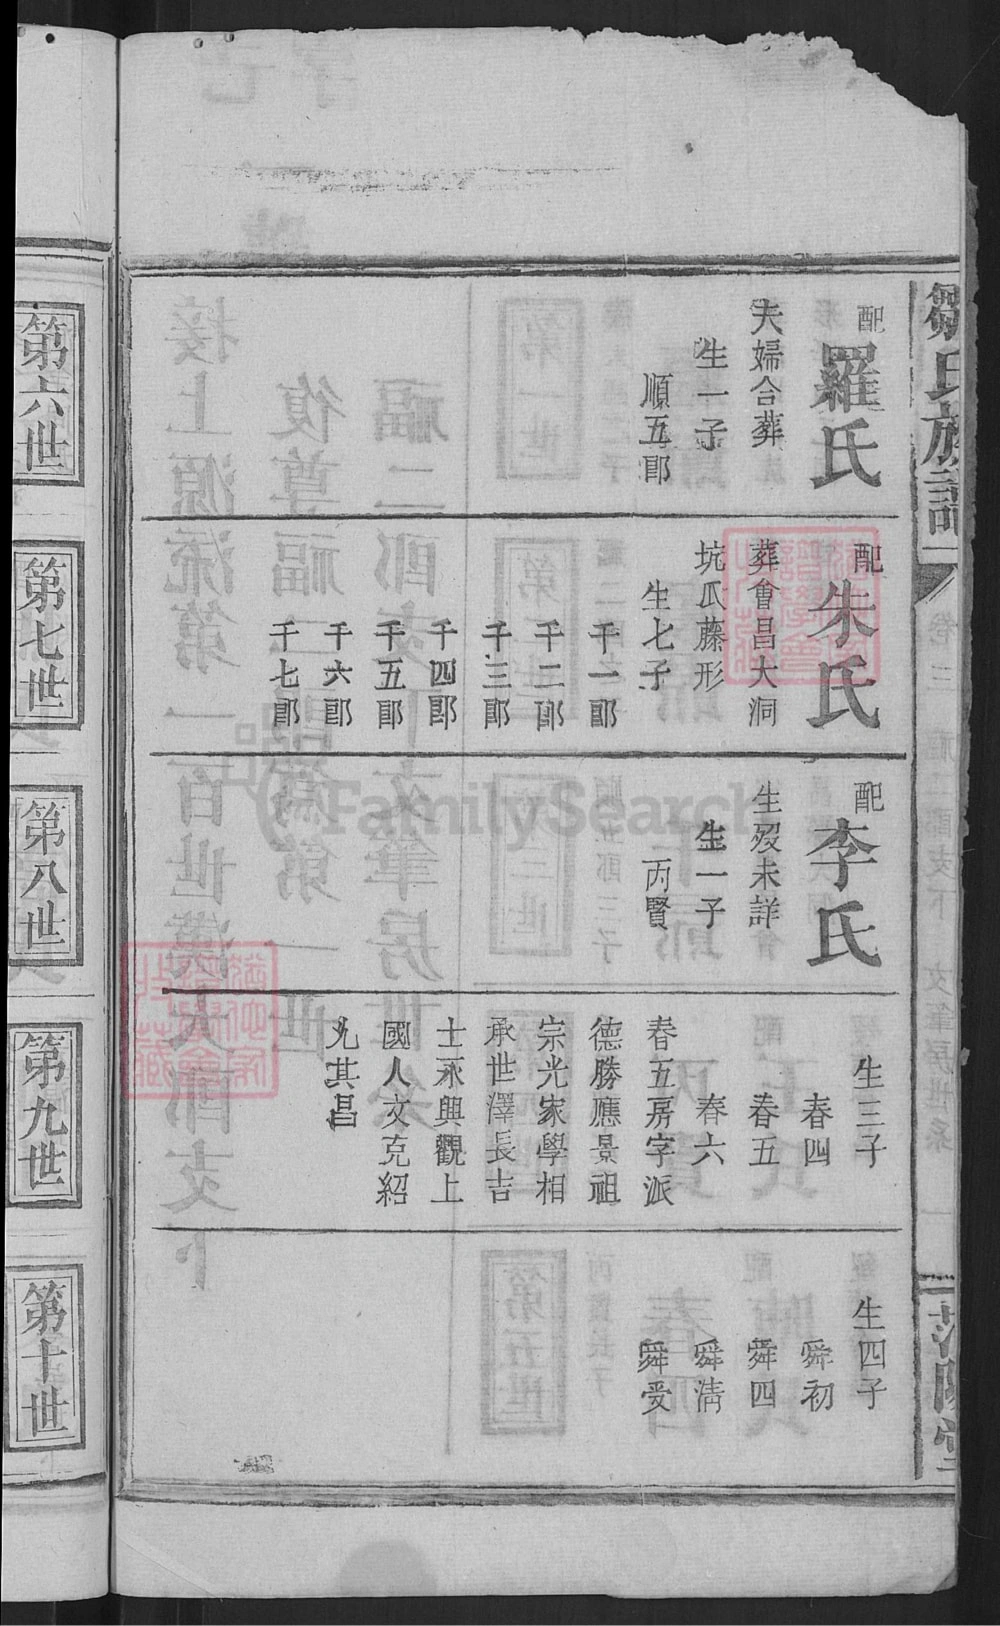 鄒氏族譜
配羅氏
夫婦合葬
生一子
順五郎
配朱氏
葬會昌大洞
坑瓜藤形
生七子
千一郎
千二郎
千三郎
千四郎
千五郎
千六郎
千七郎
配李氏
生歿未詳
生一子
丙賢
生三子
春四
春五
春六
春五房字派
德勝應景祖
宗光家學相
承世澤長吉
士永興觀上
國人文克紹
允其昌
生四子
舜初
舜四
舜清
舜受
第六世
第七世
第八世
第九世
第十世
FamilySearch